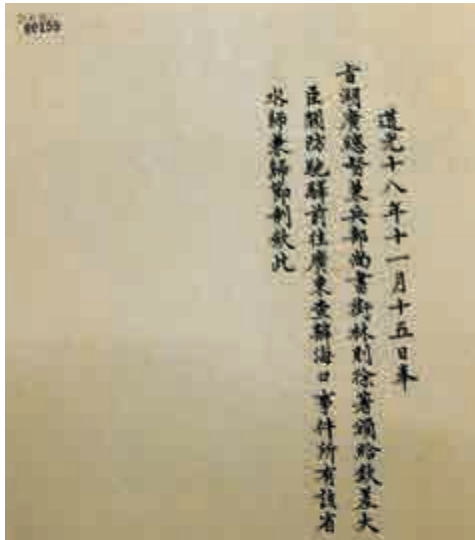 道光十八年十一月十五日奉
旨湖廣總督兼兵部尚書銜林則徐著頒給欽差大
臣關防馳驛前往廣東查辦海口事件所有該省
水師兼歸節制欽此